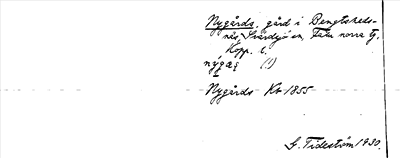 Nygårds, gård i Bengtsheds-
näs, Svärdsjö sn, Falu norra tg,
Kopp. l.
(!)
Nygårds Kb 1855
G. Tideström 1930.